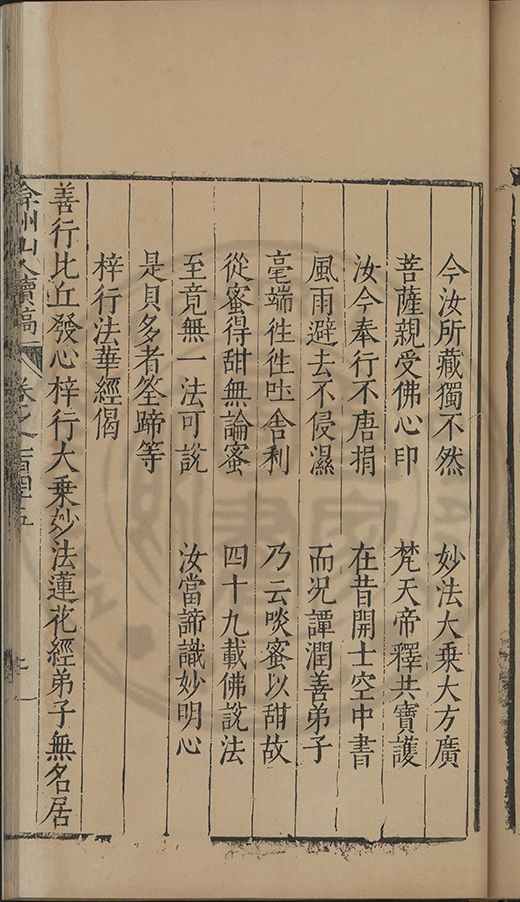 今汝所藏獨不然　妙法大乗大方廣
菩薩親受佛心印　梵天帝釋共寶護
汝今奉行不唐捐　在昔開士空中書
風雨避去不侵濕　而况譚潤善弟子
毫端徃徃吐舎利　乃云啖蜜以甜故
從蜜得甜無論蜜　四十九載佛說法
至竟無一法可說　汝當諦識妙明心
是貝多者筌蹄等
梓行法華經偈
善行比丘發心梓行大乗妙法蓮花經弟子無名居
弇州山人續稿　卷之一百四十五